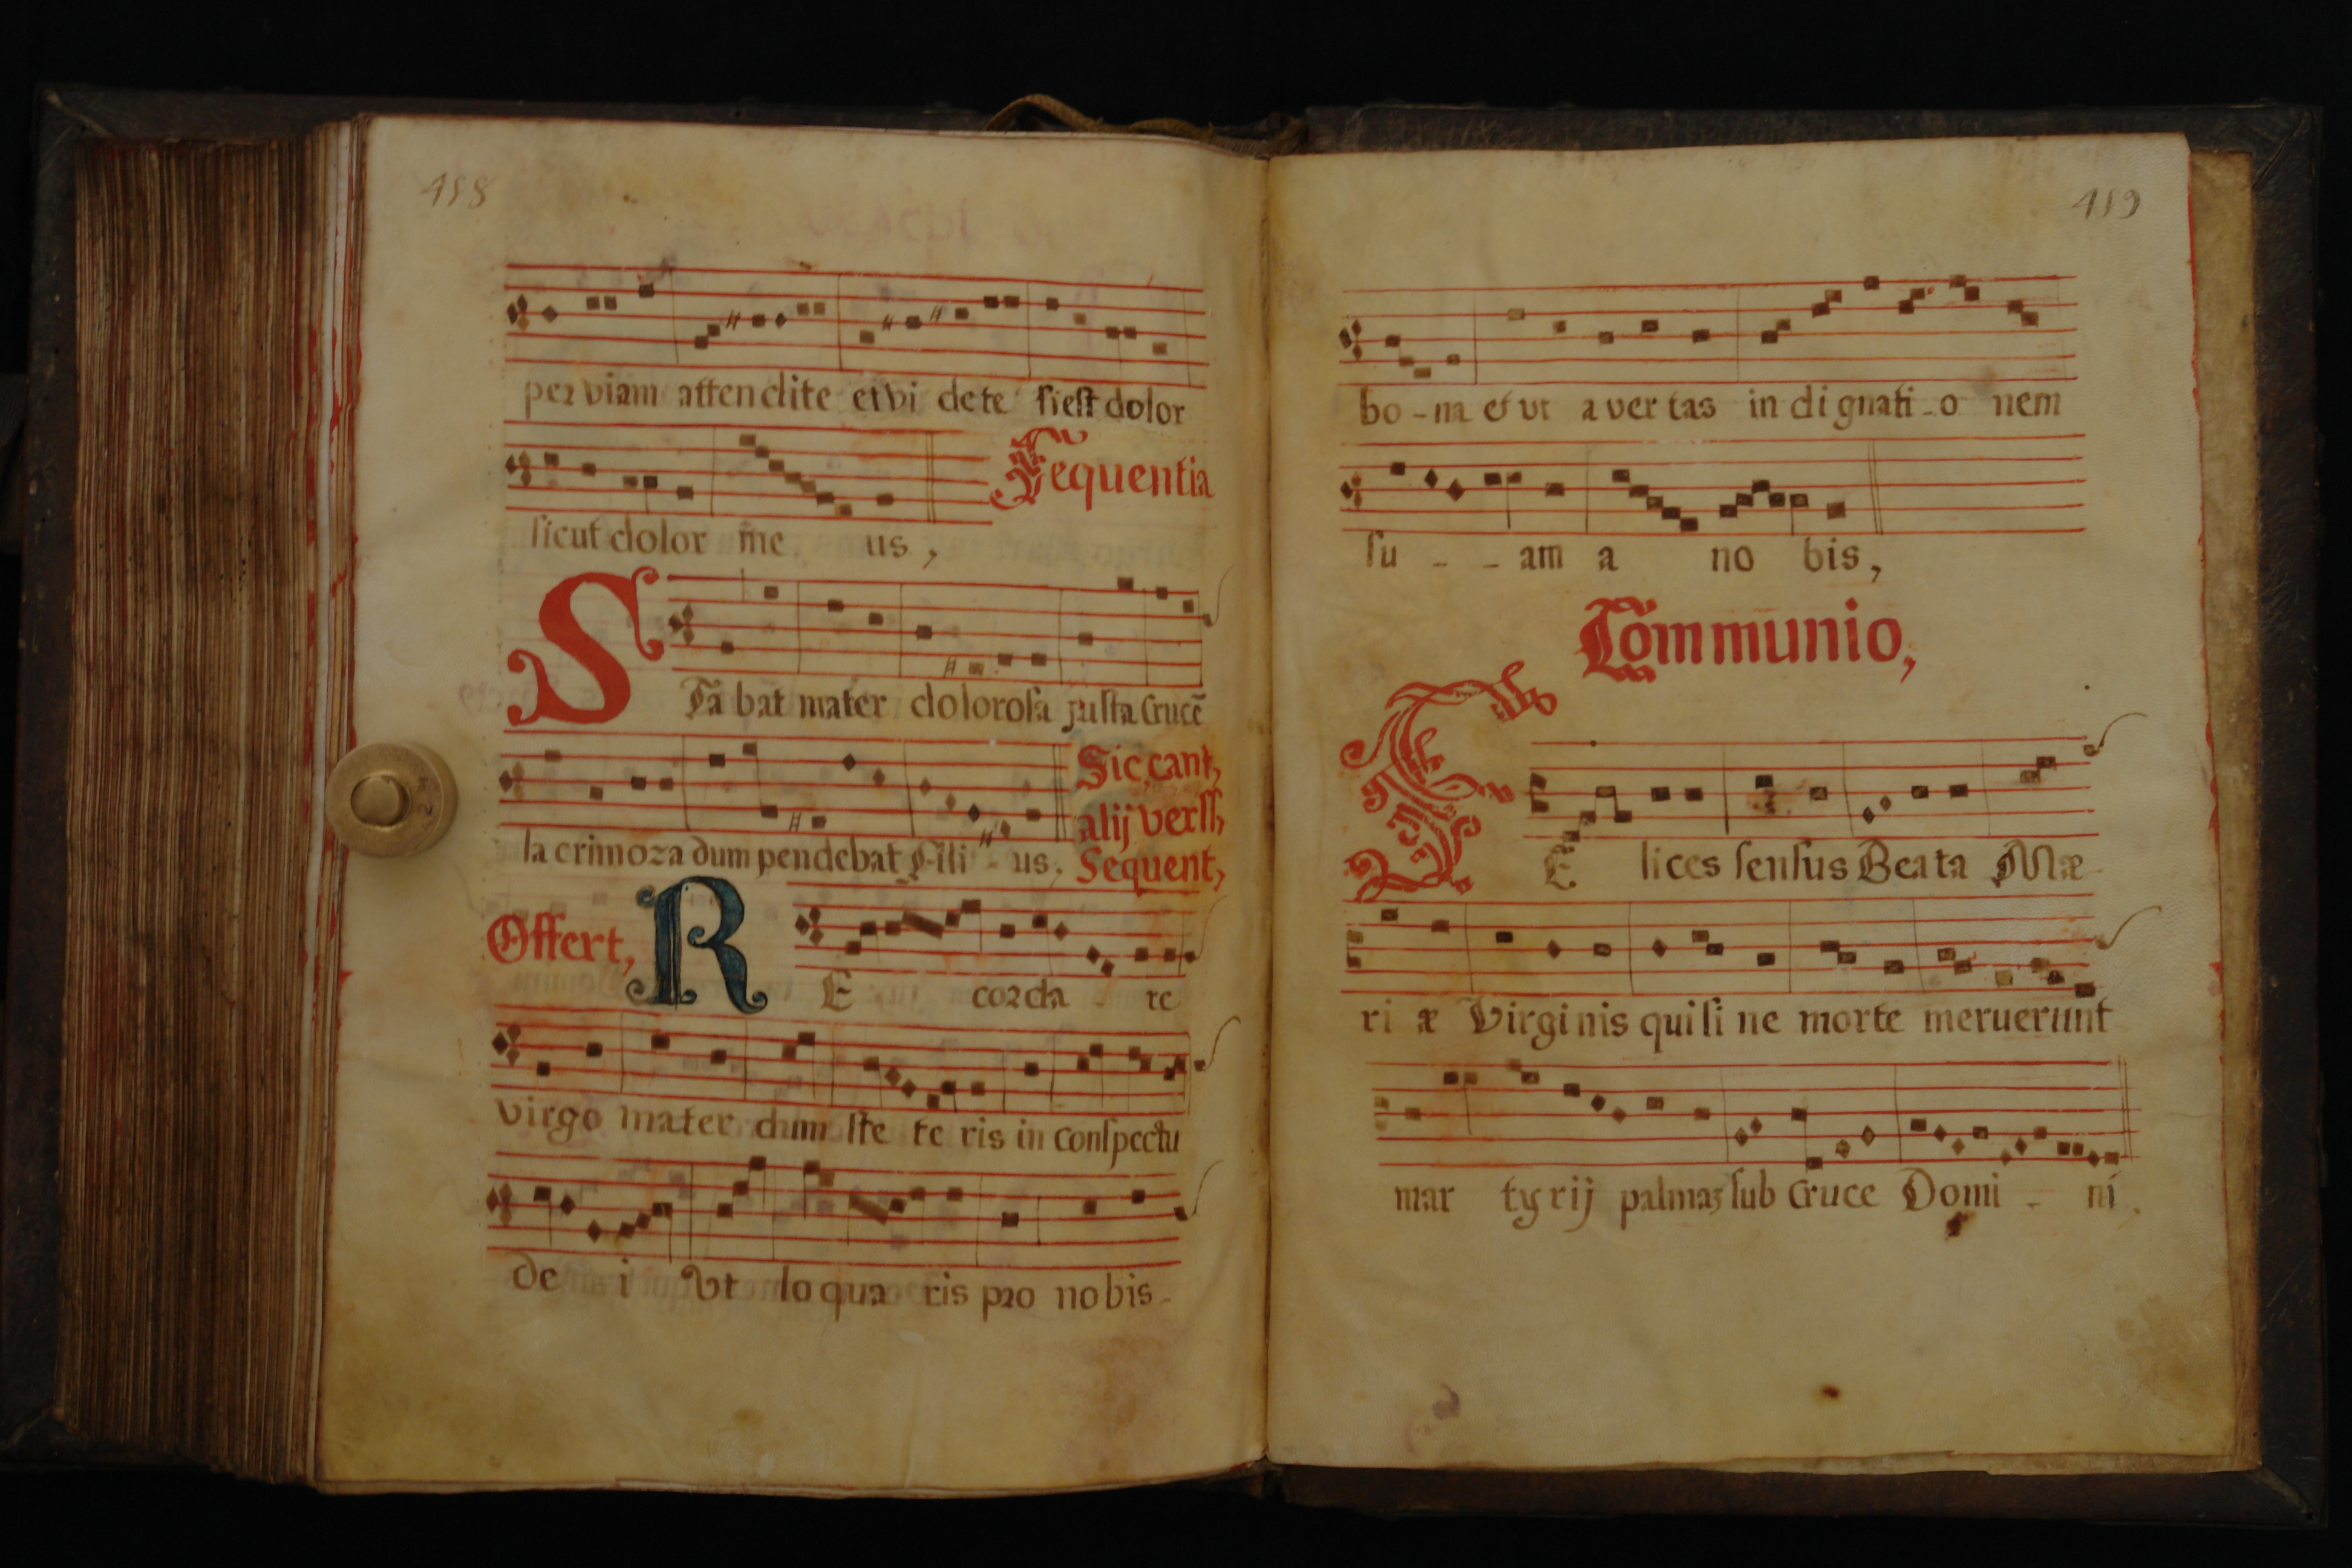 458
per viam attendite et vi dete si est dolor
Sequentia
sicut dolor me us,
STa bat mater dolorosa justa Crucē
Sic, cant,
alij verss,
la crimoza dum pendebat Fili - us,
Sequent,
Offert,
RE corda - re
virgo mater dum ste te ris in conspectu
de i Vt lo qua ris pro nobis -
459
bo - na et ut a ver tas in di gnati - o nem
su - - am a no bis,
Communio,
FE lices sensus Beata Mæ
ri æ Virginis qui si ne morte meruerunt
mar ty rij palmaȝ sub Cruce Domi - ni.